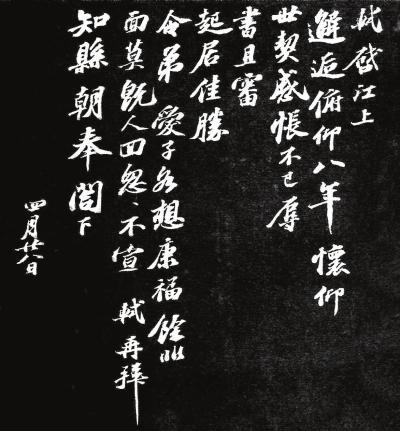 軾啓江上
邂逅俯仰八年 懷仰
世契感悵不已辱
書且審
起居佳勝
令弟愛子各想康福餘非
面莫既人回怱々不宣 軾再拜
知縣朝奉閤下
四月廿八日